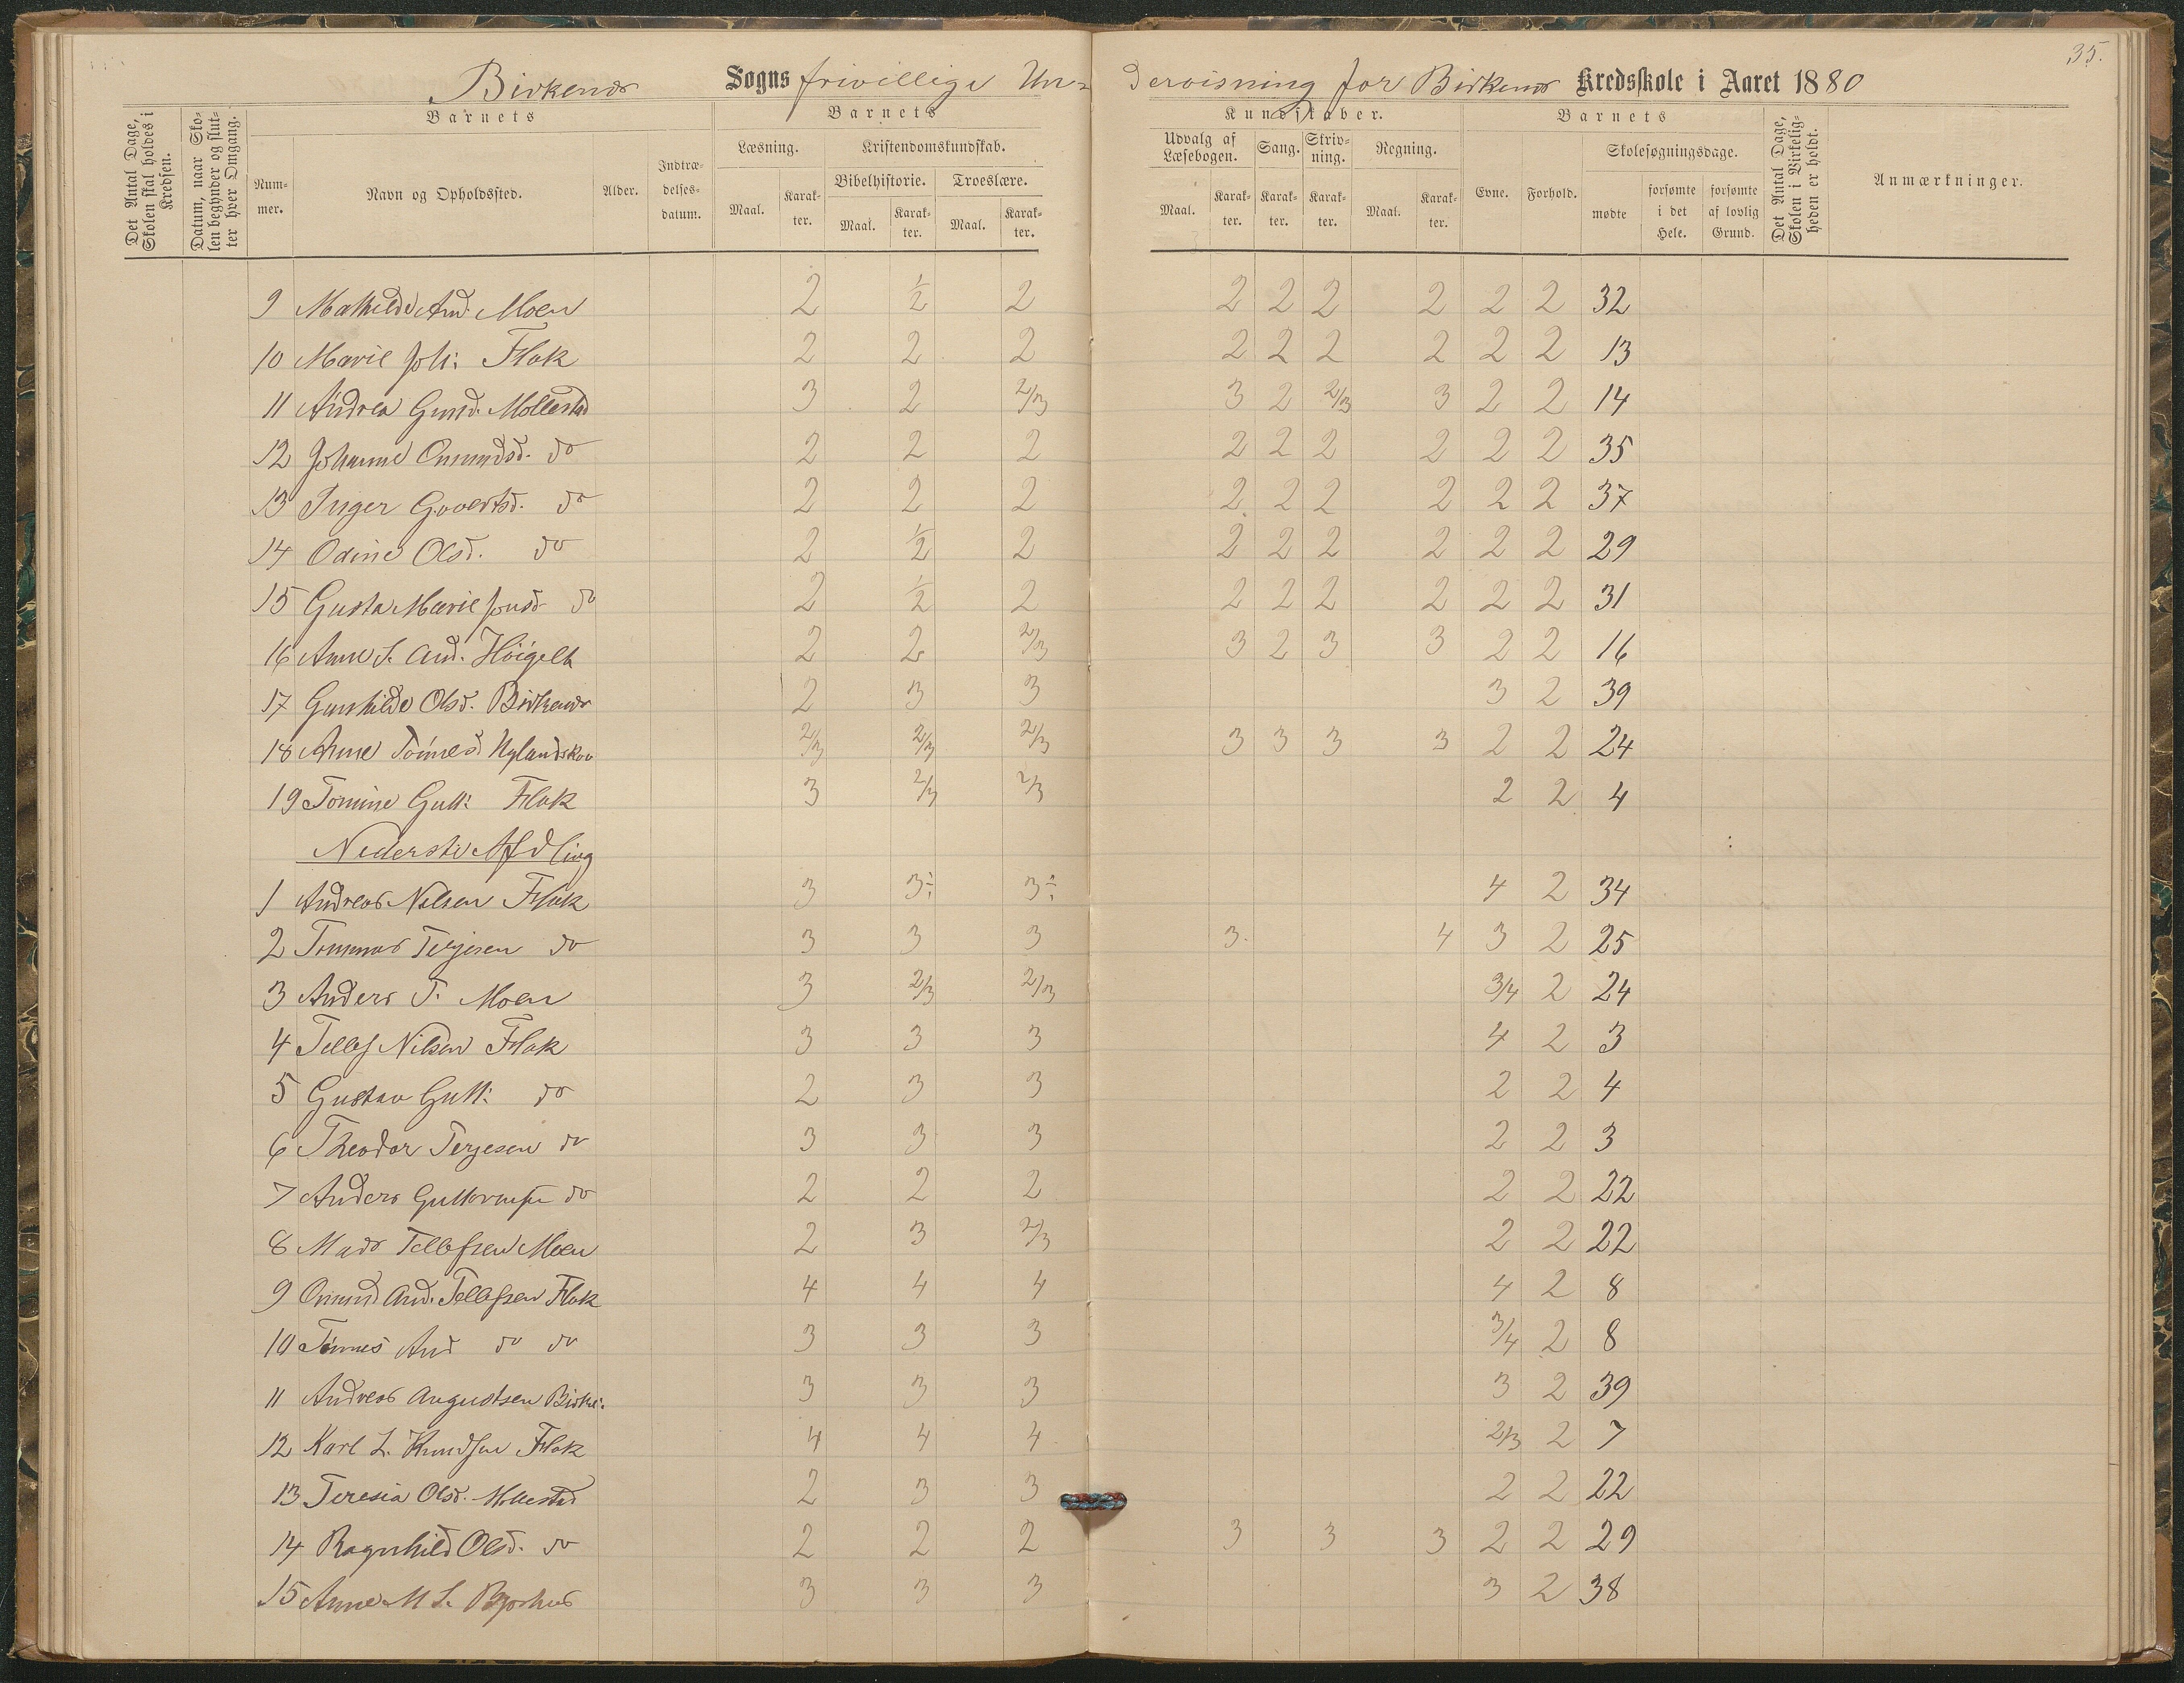 35.
Birkenes Sogns frivillige Un- dervisning for Birkenes Kredsskole i Aaret 1880
Det Antal Dage, Skolen skal holdes i Kredsen.
Datum, naar Skolen begynder og slutter hver Omgang.
Barnets
Nummer.
Navn og Opholdssted.
Alder.
Indtrædelses-datum.
Barnets
Læsning.
Maal.
Karakter.
Kristendomskundskab.
Bibelhistorie.
Maal.
Karakter.
Troeslære.
Maal.
Karakter.
Kundskaber.
Udvalg af Læsebogen.
Maal.
Karakter.
Sang.
Karakter.
Skrivning.
Karakter.
Regning.
Maal.
Karakter.
Barnets
Evne.
Forhold.
Skolesøgningsdage.
mødte
forsømte i det Hele.
forsømte af lovlig Grund.
Det Antal Dage, Skolen i Virkeligheden er holdt.
Anmærkninger.
9 Mathilde And. Moen 2 1/2 2 2 2 2 2 2 2 32
10 Marie Joh: Flak 2 2 2 2 2 2 2 2 2 13
11 Andrea Gund. Mollestad 3 2 2/3 3 2 2/3 3 2 2 14
12 Johanne Omundsd. do 2 2 2 2 2 2 2 2 2 35
13 Inger Govertsd. do 2 2 2 2 2 2 2 2 2 37
14 Odine Olsd. do 2 1/2 2 2 2 2 2 2 2 29
15 Gusta Marie Jonsd do 2 1/2 2 2 2 2 2 2 2 31
16 Anne S. And. Høigelt 2 2 2/3 3 2 3 3 2 2 16
17 Gunhilde Olsd. Birkenes 2 3 3 3 2 39
18 Anne Tønnesd. Uglandskov 2/3 2/3 2/3 3 3 3 3 2 2 24
19 Tomine Gutt: Flak 3 2/3 2/3 2 2 4
Nederste Afdling
1 Andreas Nilsen Flak 3 3÷ 3÷ 4 2 34
2 Tommas Terjesen do 3 3 3 3. 4 3 2 25
3 Anders T. Moen 3 2/3 2/3 3/4 2 24
4 Tellef Nilsen Flak 3 3 3 4 2 3
5 Gustav Gutt: do 2 3 3 2 2 4
6 Theodor Terjesen do 3 3 3 2 2 3
7 Anders Guttormsen do 2 2 2 2 2 22
8 Mads Tellefsen Moen 2 3 2/3 2 2 22
9 Omund And. Tellefsen Flak 4 4 4 4 2 8
10 Tønnes And do do 3 3 3 3/4 2 8
11 Andreas Augustsen Birke: 3 3 3 3 2 39
12 Karl L. Knudsen Flak 4 4 4 2/3 2 7
13 Teresia Olsd. Mollestad 2 3 3 2 2 22
14 Ragnhild Olsd. do 2 2 2 3 3 3 2 2 29
15 Anne M S. 3 3 3 3 2 38